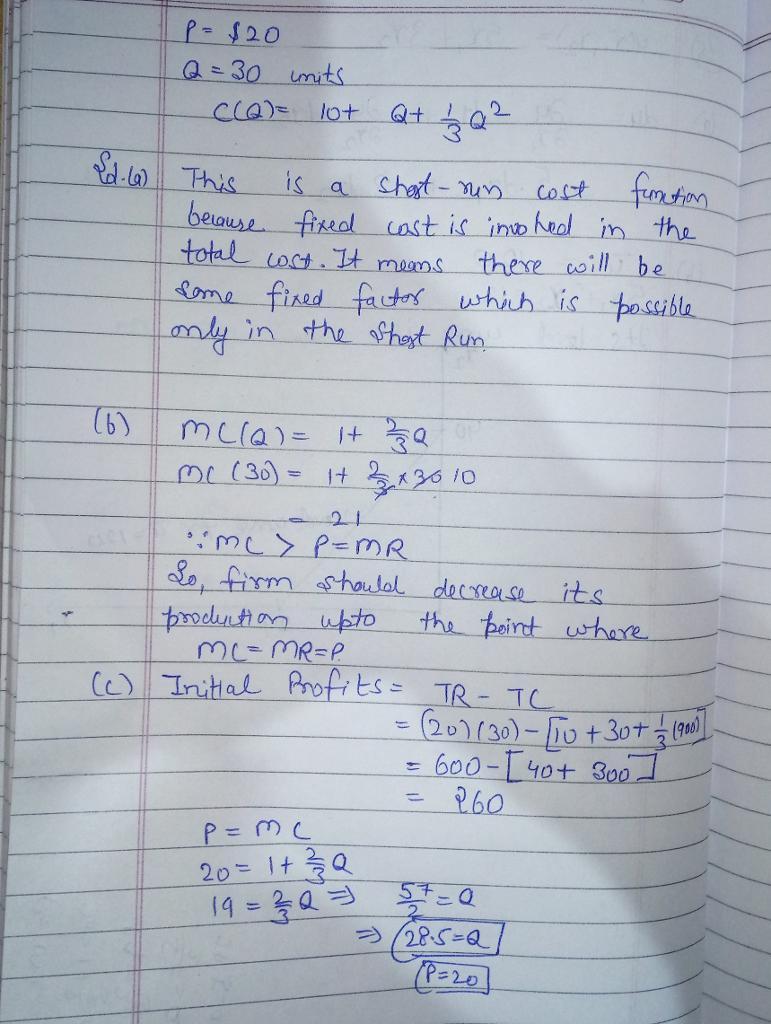 P = $20
Q = 30 units
C(Q) = 10 + Q + 1/3 Q²
Sol.(a) This is a short-run cost function
because fixed cost is involved in the
total cost. It means there will be
some fixed factor which is possible
only in the Short Run.
(b) MC(Q) = 1 + 2/3 Q
MC (30) = 1 + 2/3 × 30 10
= 21
∵ MC > P = MR
So, firm should decrease its
production upto the point where
MC = MR = P.
(c) Initial Profits = TR - TC
= (20)(30) - [10 + 30 + 1/3 (900)]
= 600 - [40 + 300]
= 260
P = MC
20 = 1 + 2/3 Q
19 = 2/3 Q ⇒ 57/2 = Q
⇒ 28.5 = Q
P = 20